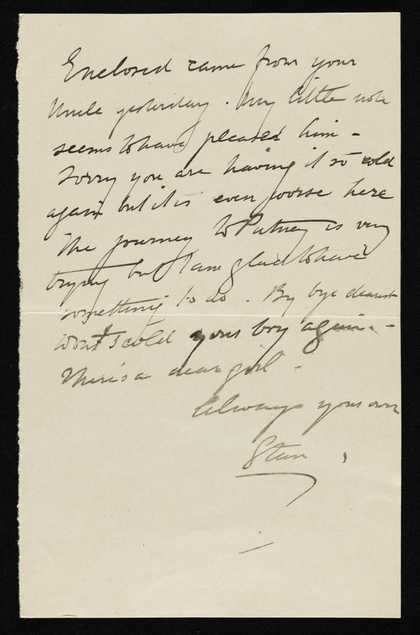 Enclosed came from your
Uncle yesterday. My little note
seems to have pleased him -
Sorry you are having it so cold
again but it is even worse here
The journey to Putney is very
trying but I am glad to have
something to do. By bye dearest
wont scold yours boy again -
There's a dear girl -
Always yours own
Stan